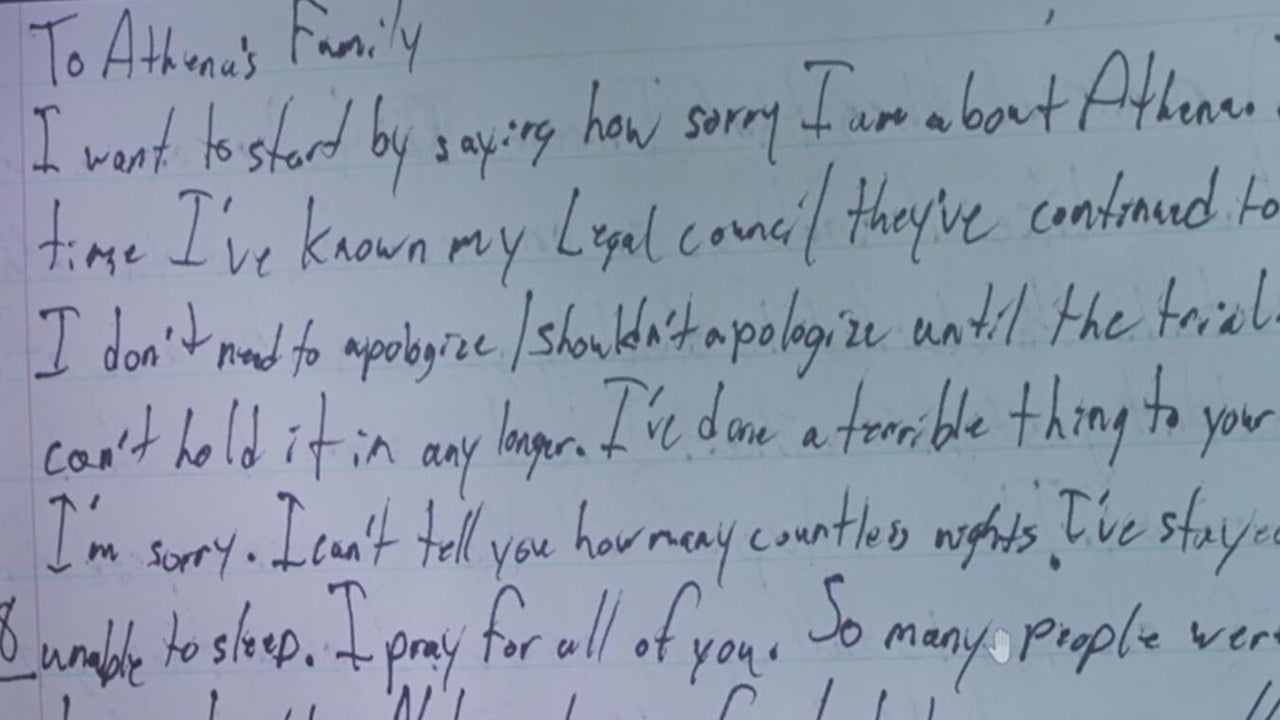 To Athena's Family
I want to start by saying how sorry I am about Athena.
time I've known my Legal council they've continued to
I don't need to apologize/shouldn't apologize until the trial.
can't hold it in any longer. I've done a terrible thing to your
I'm sorry. I can't tell you how many countless nights I've stayed
8 unable to sleep. I pray for all of you. So many people were